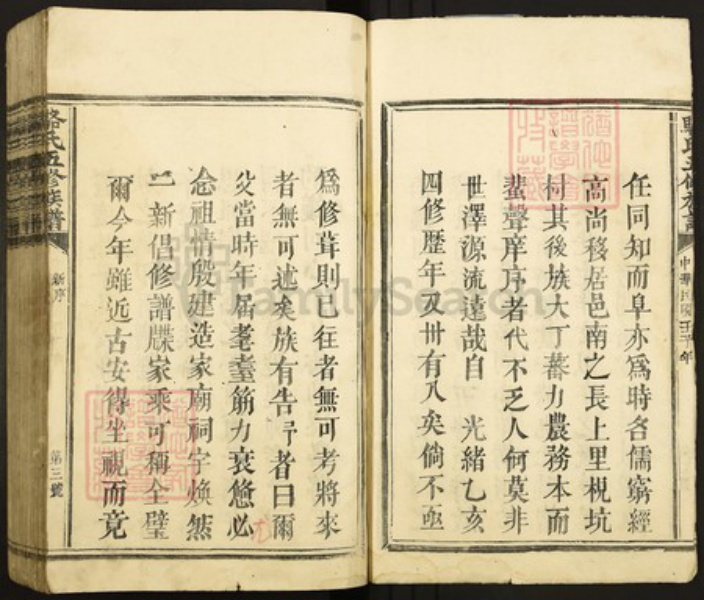 任同知而阜亦為時名儒窮經
高尚移居邑南之長上里枧坑
村其後族大丁蕃力農務本而
蜚聲庠序者代不乏人何莫非
世澤源流遠哉自 光緒乙亥
四修歷年又卅有八矣倘不亟
為修葺則已往者無可考將來
者無可述矣族有告予者曰爾
父當時年屆耄耋筋力衰憊必
念祖情殷建造家廟祠宇煥然
一新倡修譜牒家乘可稱全璧
爾今年雖近古安得坐視而竟
駱氏五修族譜
新序
第三號
中華民國壬子年
FamilySearch